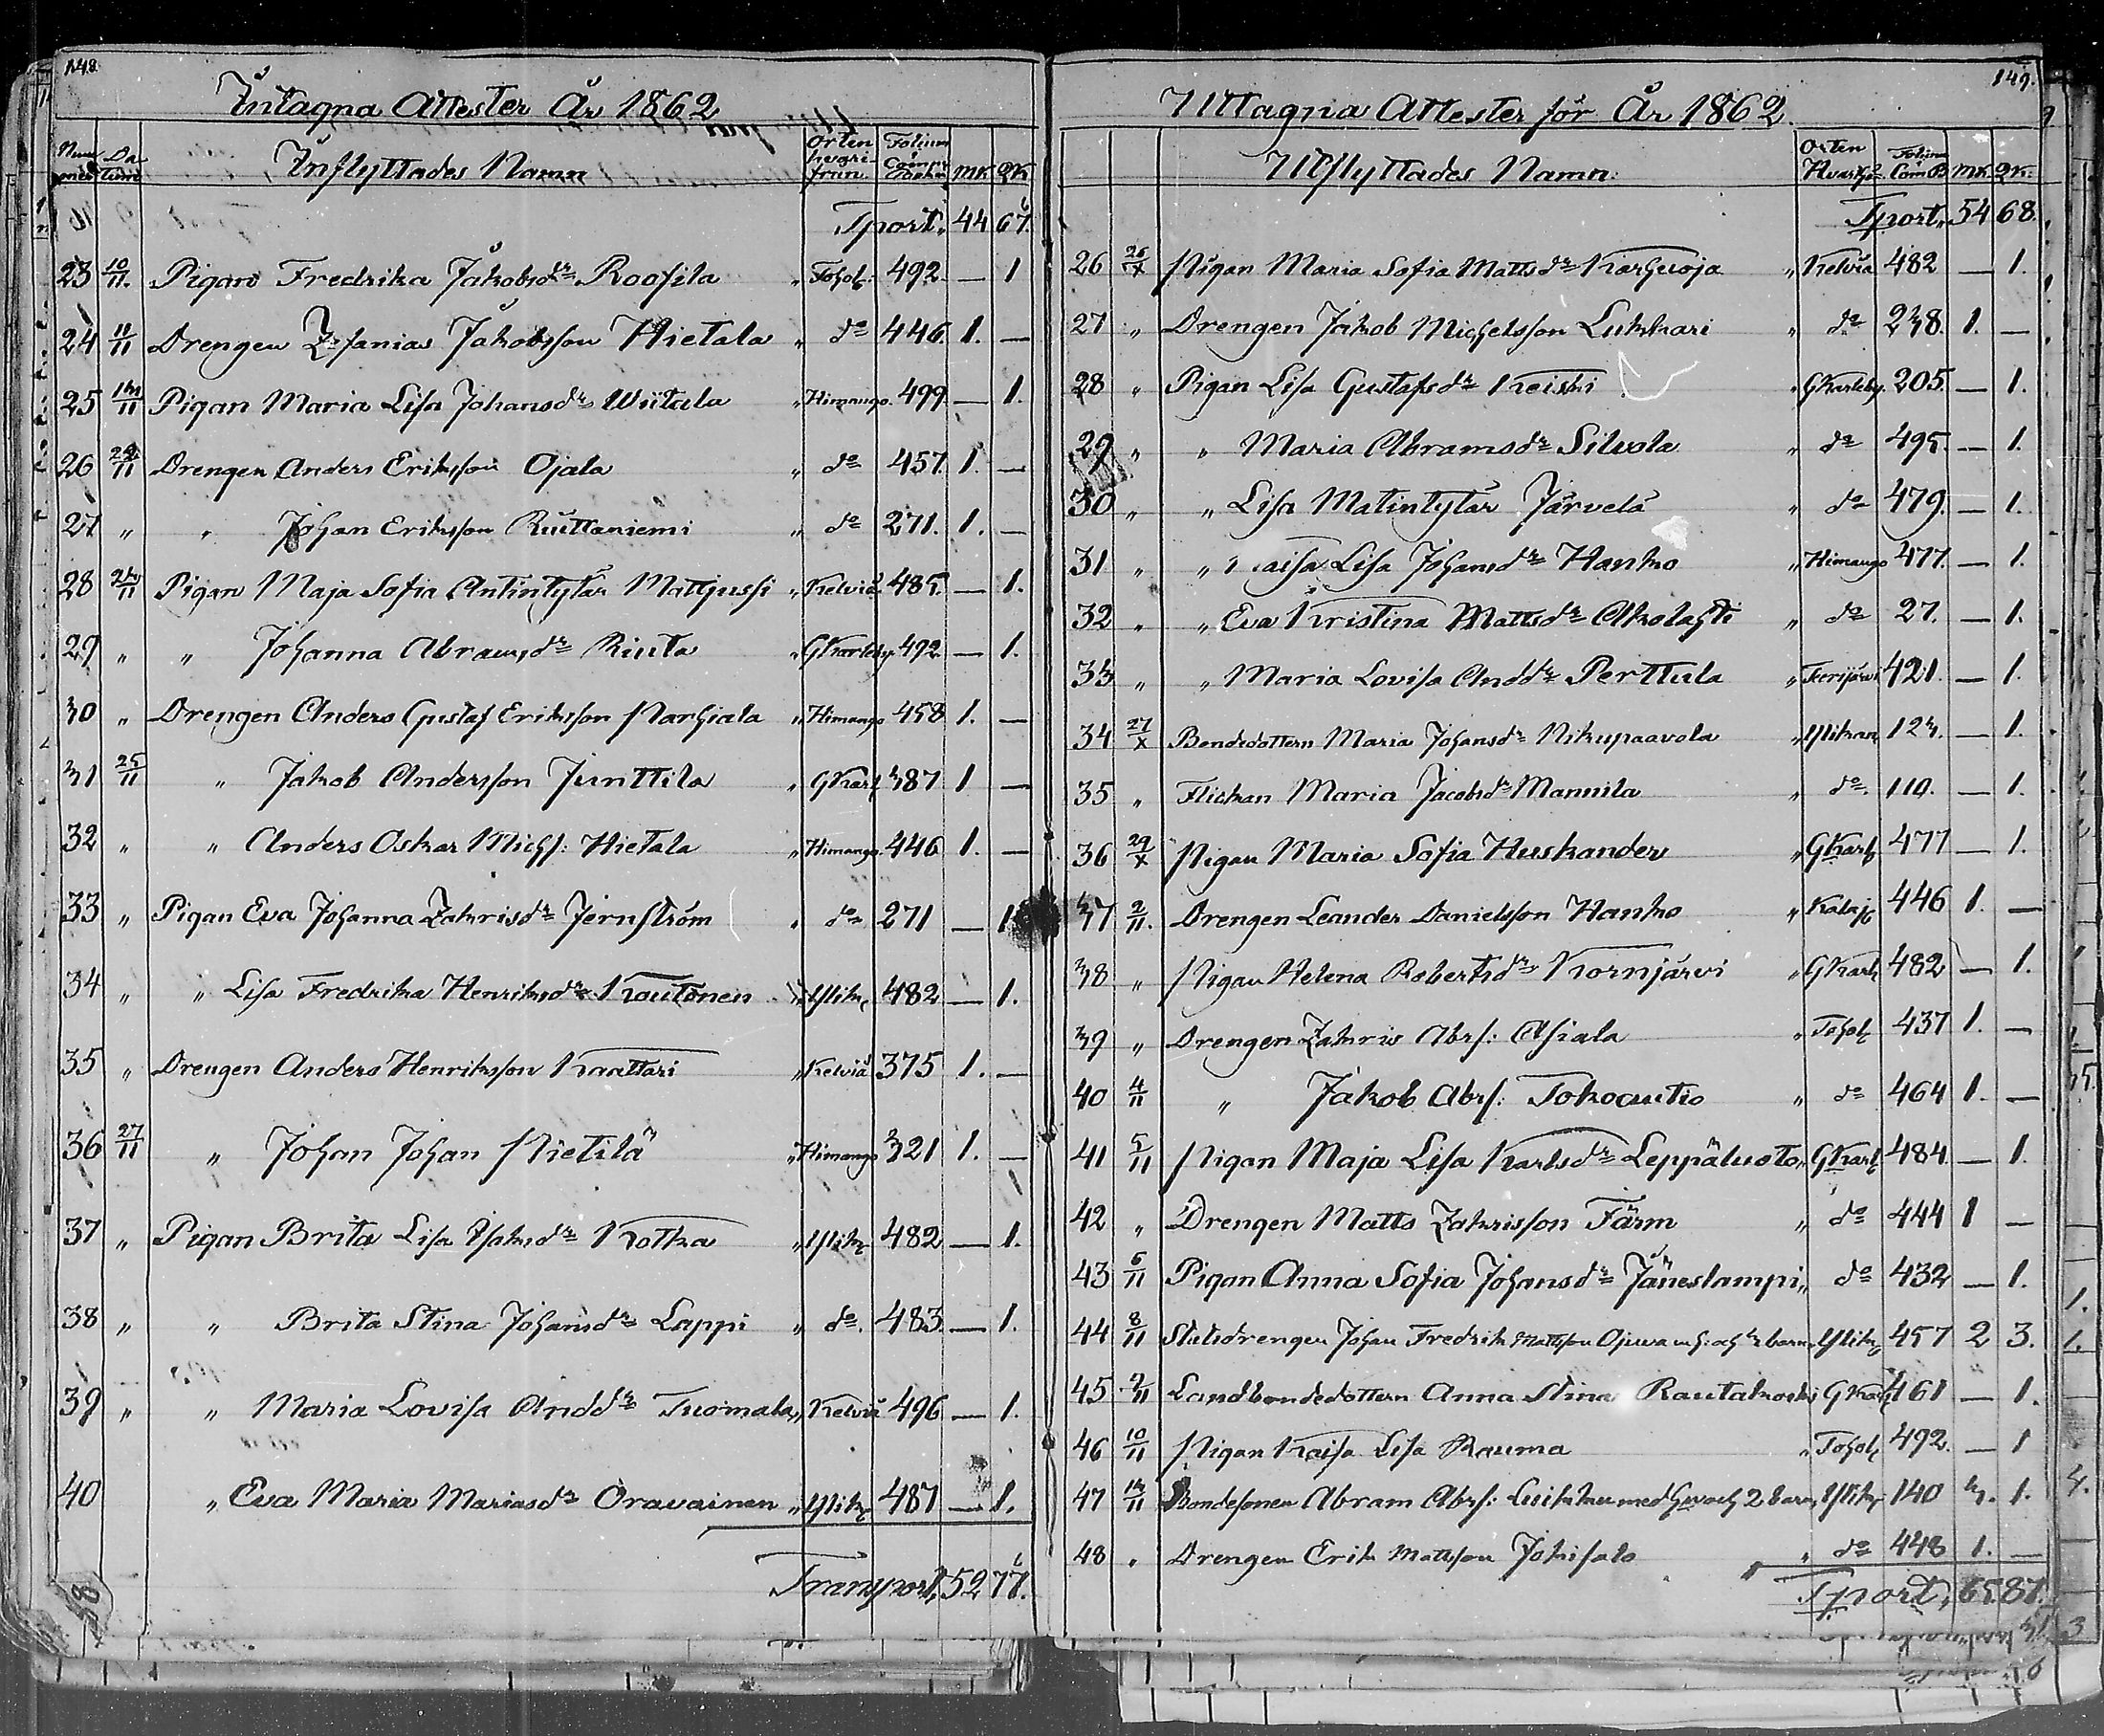 148.
Intagna Attester År 1862
Numer Datum Inflyttades Namn Orten hvarifrån Folium MK. QK
Tport. 44 67.
23 10/11. Pigan Fredrika Jakobsdr Roosila " Tohol: 492. — 1
24 11/11 Drengen Zefanias Jakobsson Hietala " do 446. 1. —
25 14/11 Pigan Maria Lisa Johansdr Wiitala " Himango. 499. — 1.
26 22/11 Drengen Anders Eriksson Ojala " do 457. 1. —
27 " " Johan Eriksson Ruuttaniemi " do 271. 1. —
28 24/11 Pigan Maja Sofia Antintytär Mattjussi " Kelviå 485. — 1.
29 " " Johanna Abramsdr Riuta " GKarleby. 492 — 1.
30 " Drengen Anders Gustaf Eriksson Marhiala " Himango 458 1. —
31 25/11 " Jakob Andersson Junttila " GKarl 387 1 —
32 " " Anders Oskar Michs: Hietala " Himango. 446 1. —
33 " Pigan Eva Johanna Zakrisdr Jernström " do 271 — 1
34 " " Lisa Fredrika Henriksdr Koutonen " Ylik 482 — 1.
35 " Drengen Anders Henriksson Kaattari " Kelviå 375 1. —
36 27/11 " Johan Johan Pietilä " Himango 321 1. —
37 " Pigan Brita Lisa Isaksdr Kotka " Ylik 482 — 1.
38 " " Brita Stina Johansdr Lappi " do. 483. — 1.
39 " " Maria Lovisa Anddr Tuomala " Kelviå 496 — 1.
40 " Eva Maria Mariasdr Oravainen " Ylik 487 — 1.
Transport, 52 77.
149.
Uttagna Attester för År 1862.
Utflyttades Namn: Orten Hvarth. Folium ComB MK. QK.
Tport. 54 68.
26 26/X Pigan Maria Sofia Mattsdr Karhuoja " Kelviå 482 — 1.
27 " Drengen Jakob Michelsson Lukkari " do 238. 1. —
28 " Pigan Lisa Gustafsdr Keiski " GKarleby. 205. — 1.
29 " " Maria Abramsdr Silvola " do 495. — 1.
30 " " Lisa Matintytär Järvelä " do 479. — 1.
31 " " Kaisa Lisa Johansdr Hanko " Himango 477. — 1.
32 " " Eva Kristina Mattsdr Akolahti " do 27. — 1.
33 " " Maria Lovisa Anddr Perttula " Terijärvi 421. — 1.
34 27/X Bondedottern Maria Johansdr Nikupaavola " Ylikan 123. — 1.
35 " Flickan Maria Jacobsdr Mannila " do. 110. — 1.
36 29/X Pigan Maria Sofia Huskander " GKarl 477 — 1.
37 2/11. Drengen Leander Danielsson Hanko " Kalaj 446 1. —
38 " Pigan Helena Robertsdr Kornjärvi " GKarl 482 — 1.
39 " Drengen Zakris Abrs: Asiala " Tohol 437 1. —
40 4/11 " Jakob Abrs: Tokoautio " do 464 1. —
41 5/11 Pigan Maja Lisa Karlsdr Leppäluoto " GKarl 484 — 1.
42 " Drengen Matts Zakrisson Färm " do 444 1 —
43 6/11 Pigan Anna Sofia Johansdr Jäneslampi " do 432 — 1.
44 8/11 Statsdrengen Johan Fredrik Mattsson Ojuva m h: och 4 barn, Ylik 457 2 3.
45 9/11 Landbondedottern Anna Stina Rautakoski GKarl 161 — 1.
46 10/11 Pigan Kaisa Lisa Rauma " Tohol 492. — 1
47 14/11 Bondesonen Abram Abrs: med hu och 2 barn, Ylik 140 3. 1.
48 " Drengen Erik Mattsson Jokisalo " do 448 1. —
Tport, 65. 87.